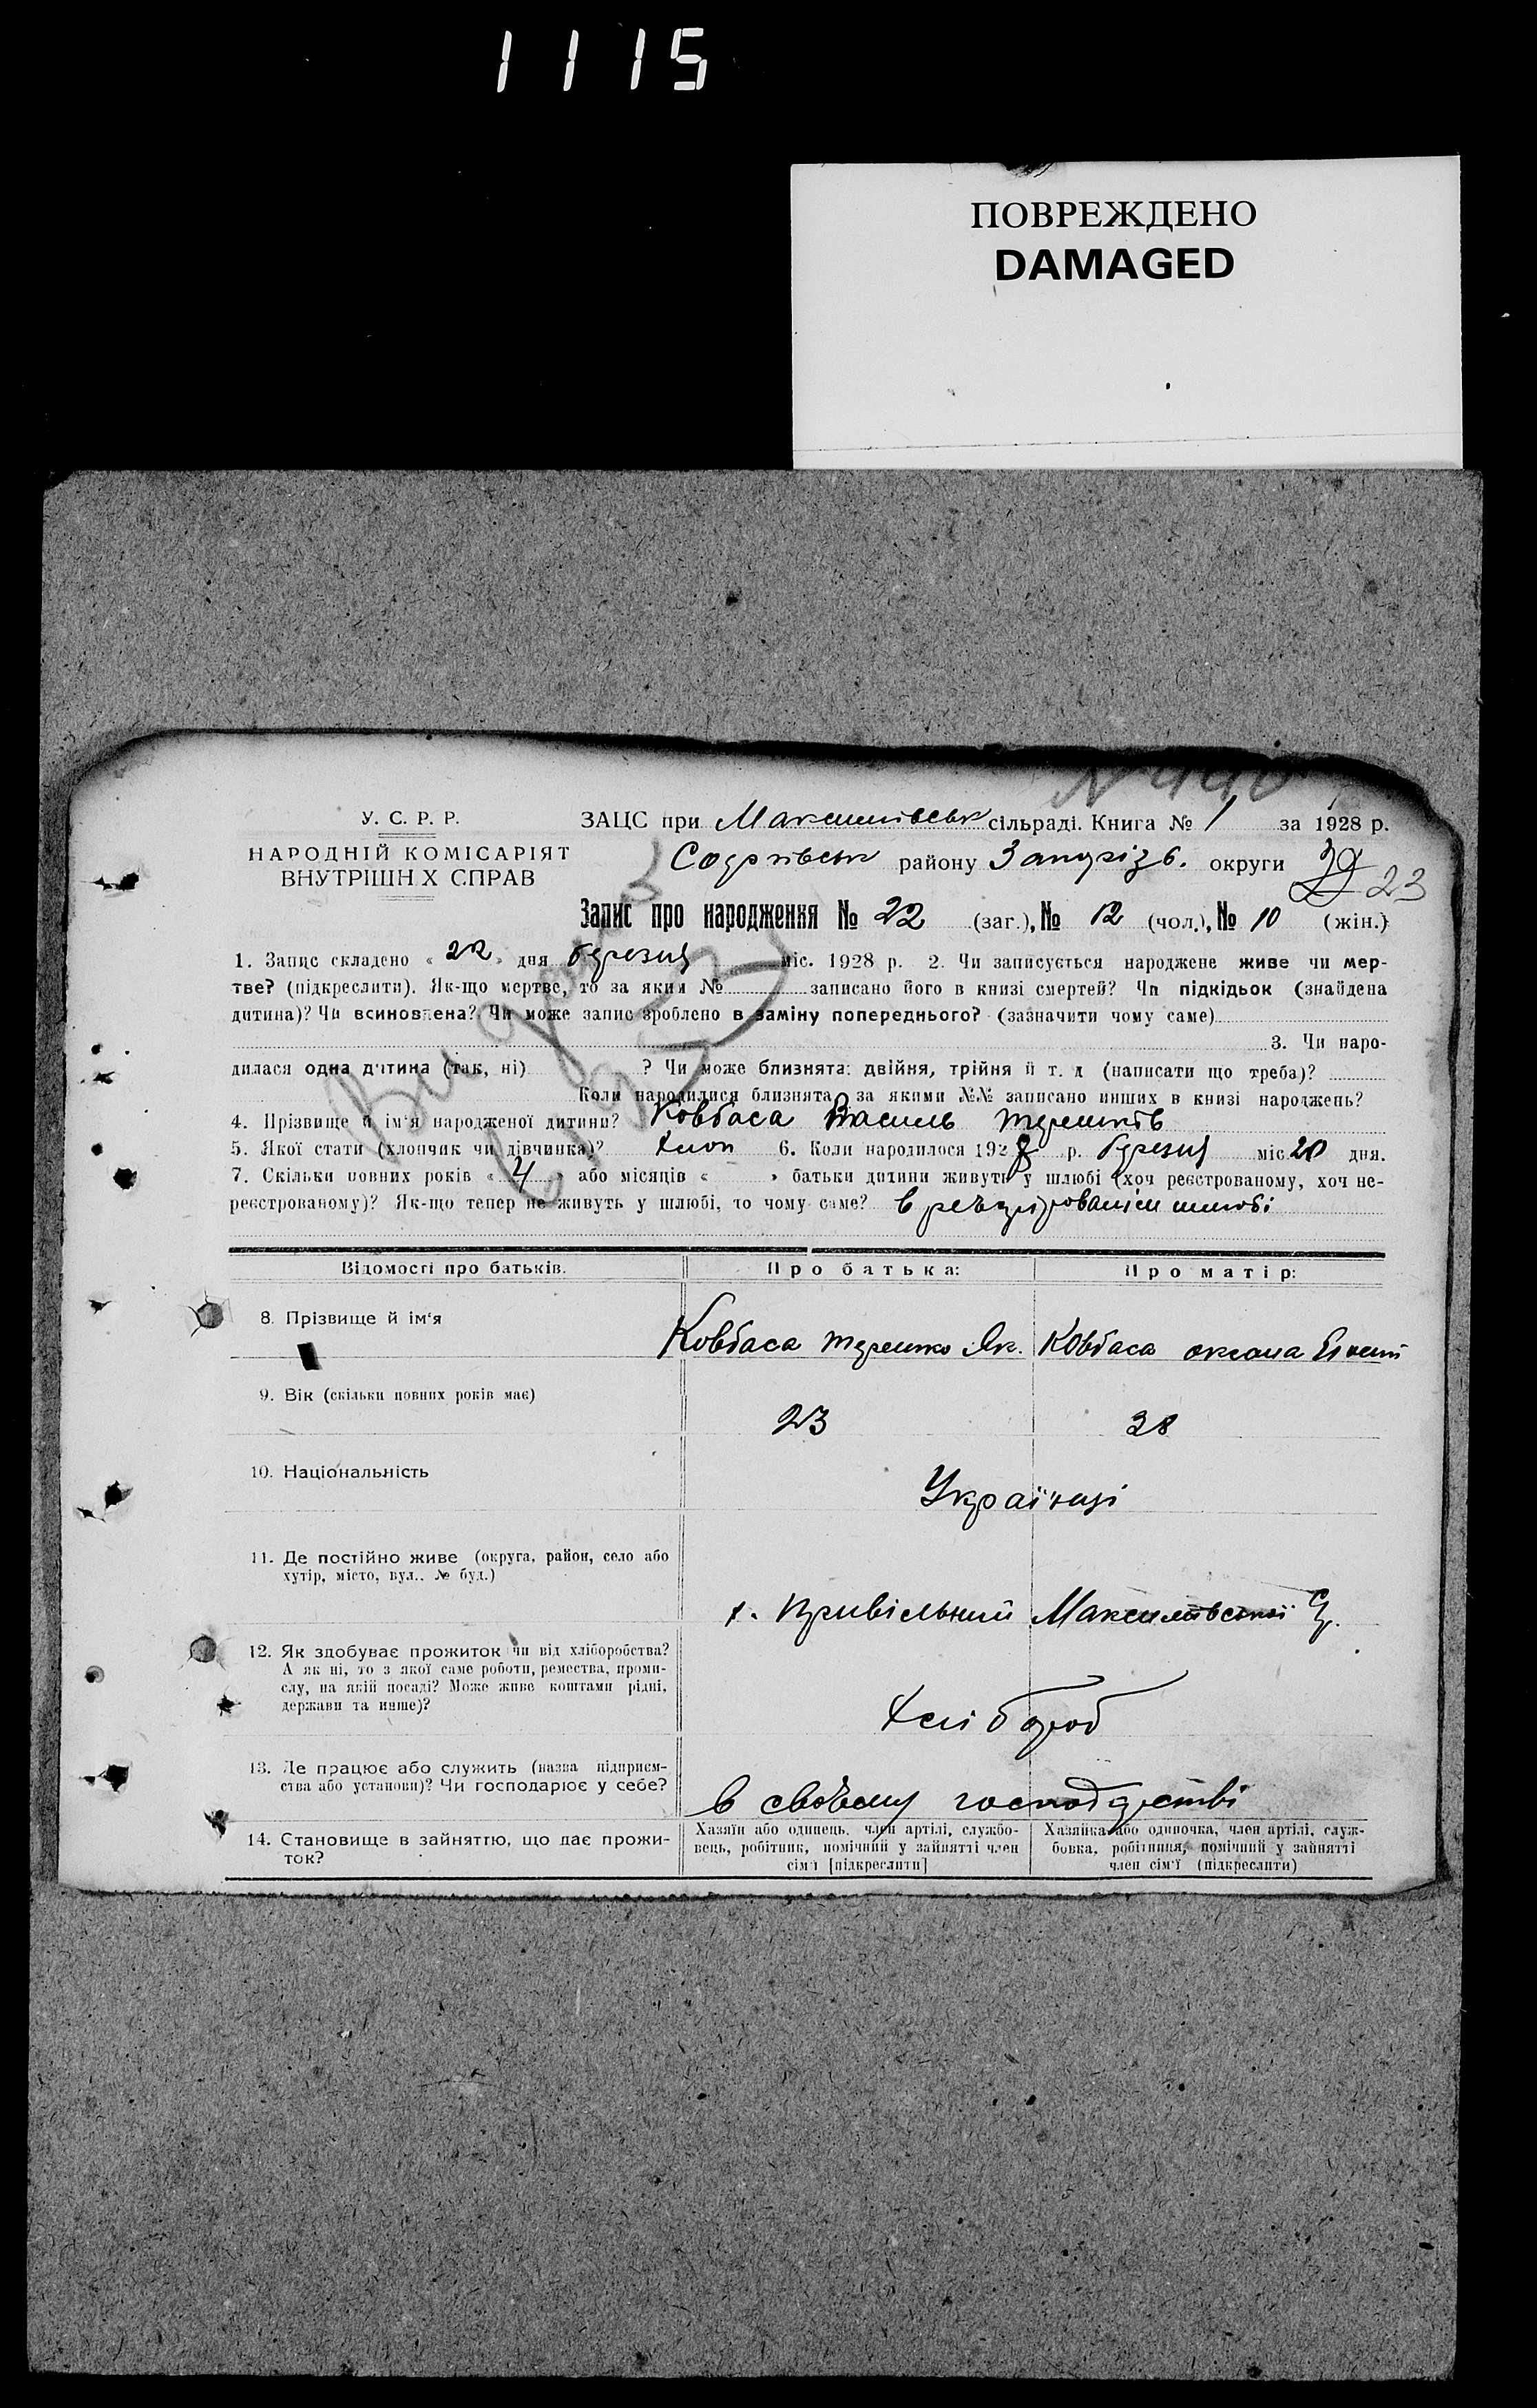 1115
ПОВРЕЖДЕНО
DAMAGED
У. С. Р. Р.
НАРОДНІЙ КОМІСАРІЯТ
ВНУТРІШН Х СПРАВ
ЗАЦС при Максимівськ сільраді. Книга № 1 за 1928 р.
району Запорізь. округи
23
Запис про народження № 22 (заг.), № 12 (чол.), № 10 (жін.)
1. Запис складено « 22 » дня березня міс. 1928 р. 2. Чи записується народжене живе чи мер-
тве? (підкреслити). Як-що мертве, то за яким № записано його в книзі смертей? Чи підкідьок (знайдена
дитина)? Чи всиновлена? Чи може запис зроблено в заміну попереднього? (зазначити чому саме)
3. Чи наро-
дилася одна дитина (так, ні) ? Чи може близнята: двійня, трійня й т. д (написати що треба)?
Коли народилися близнята, за якими №№ записано инших в книзі народжень?
4. Прізвище й ім'я народженої дитини? Ковбаса Василь Терешків
5. Якої стати (хлопчик чи дівчинка)? хлоп 6. Коли народилося 1928 р. березня міс. 20 дня.
7. Скільки повних років « 4 » або місяців « » батьки дитини живуть у шлюбі (хоч реєстрованому, хоч не-
реєстрованому)? Як-що тепер не живуть у шлюбі, то чому саме? в шлюбі
Відомості про батьків.
Про батька:
Про матір:
8. Прізвище й ім'я
Ковбаса Терешко Як. Ковбаса оксана
9. Вік (скільки повних років має)
23 28
10. Національність
Українці
11. Де постійно живе (округа, район, село або
хутір, місто, вул., № буд.)
х. Привільний Максимівської
12. Як здобуває прожиток чи від хліборобства?
А як ні, то з якої саме роботи, ремества, проми-
слу, на якій посаді? Може живе коштами рідні,
держави та инше)?
Хлібороб
13. Де працює або служить (назва підприєм-
ства або установи)? Чи господарює у себе?
в своєму господарстві
14. Становище в зайняттю, що дає прожи-
ток?
Хазяїн або одинець, член артілі, службо-
вець, робітник, помічний у зайнятті член
сім'ї [підкреслити]
Хазяйка або одиночка, член артілі, служ-
бовка, робітниця, помічний у зайнятті
член сім'ї (підкреслити)